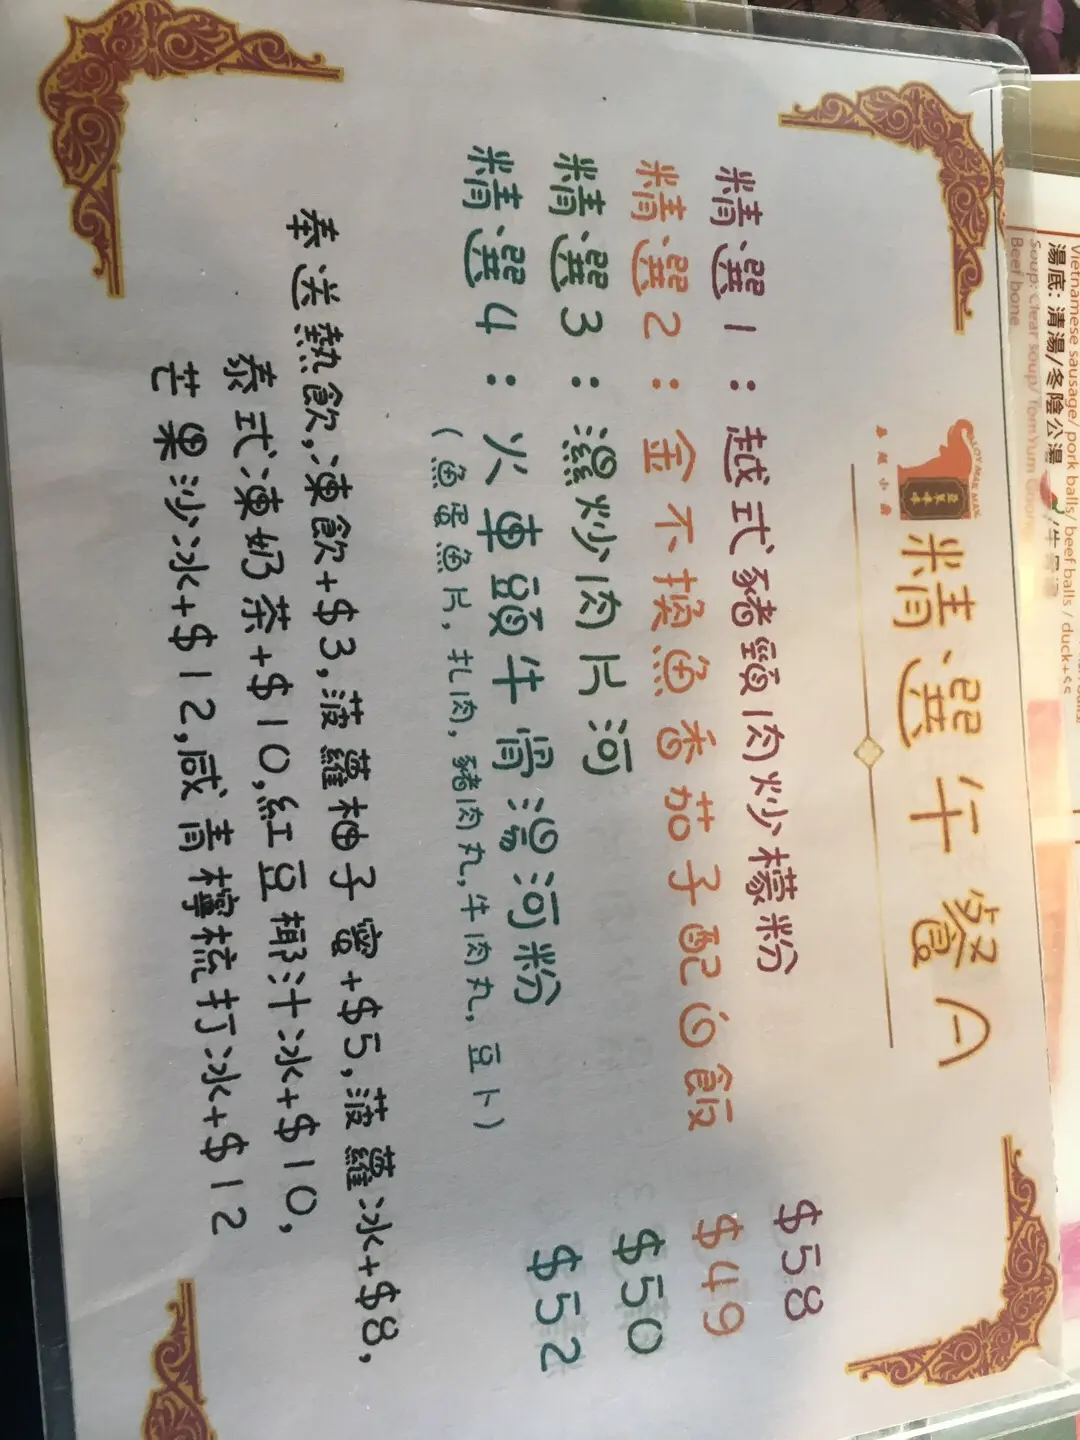 精選午餐A
精選1：越式豬頸肉炒檬粉 $58
精選2：金不換魚香茄子配白飯 $49
精選3：濕炒肉片河 $50
精選4：火車頭牛骨湯河粉 $52
（魚蛋魚片，扎肉，豬肉丸，牛肉丸，豆卜）
奉送熱飲，凍飲+$3，菠蘿柚子蜜+$5，菠蘿冰+$8，
泰式凍奶茶+$10，紅豆椰汁冰+$10，
芒果沙冰+$12，咸青檸梳打冰+$12
Vietnamese sausage/ pork balls/ beef balls / duck+$5
湯底: 清湯/冬陰公湯
Soup: Clear soup/ TomYum Goong
Beef bone